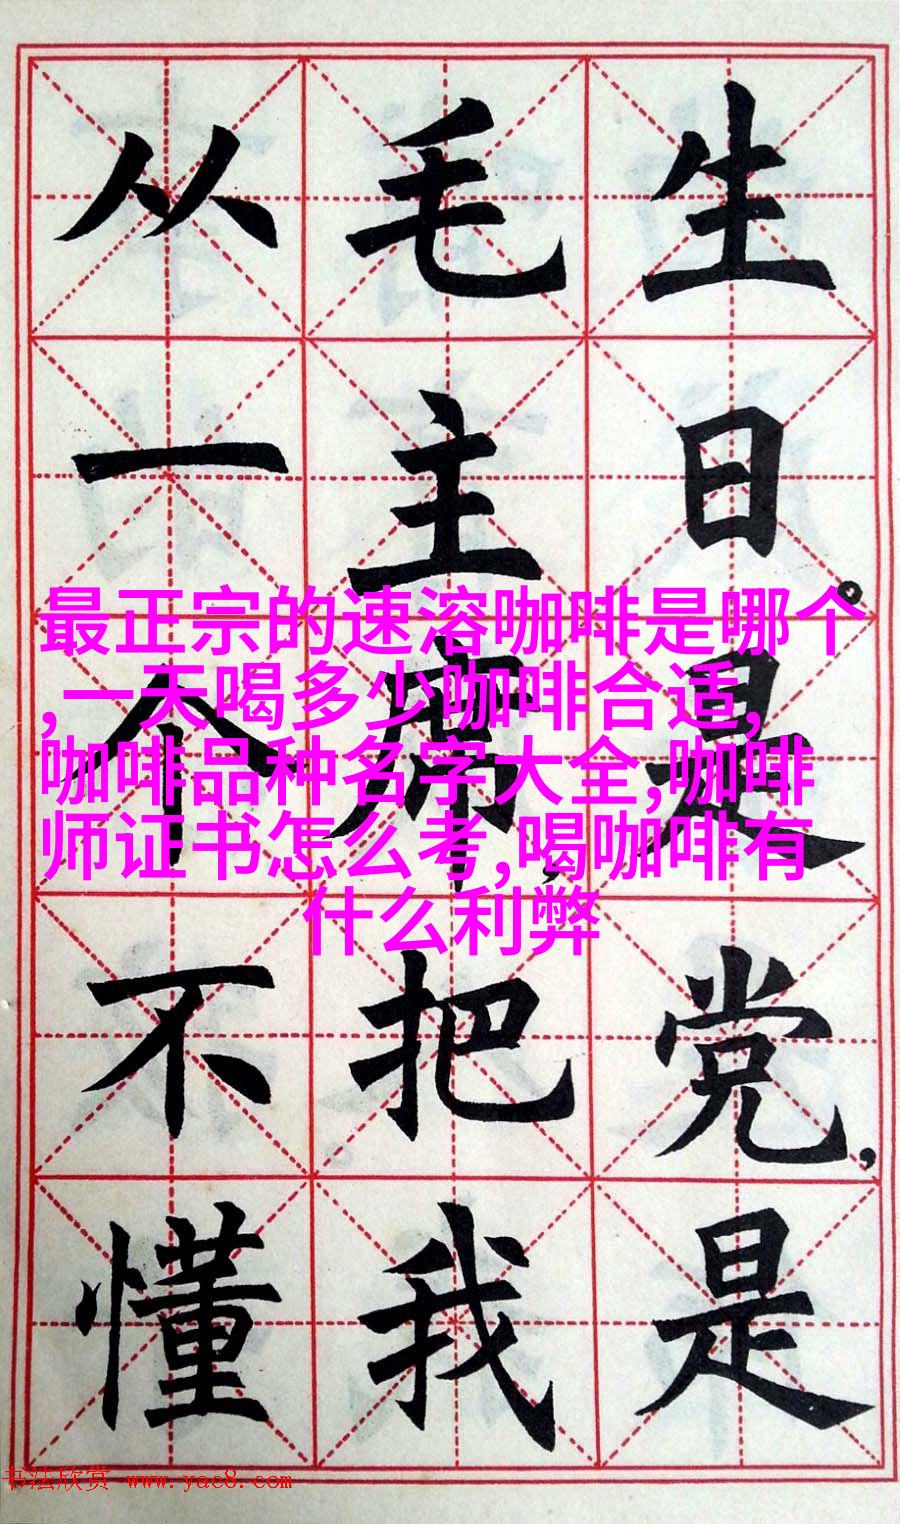 生日。是党,是
毛主席,把我
从一个不懂
最正宗的速溶咖啡是哪个
,一天喝多少咖啡合适,
咖啡品种名字大全,咖啡
师证书怎么考,喝咖啡有
什么利弊
书法欣赏 www.yac8.com